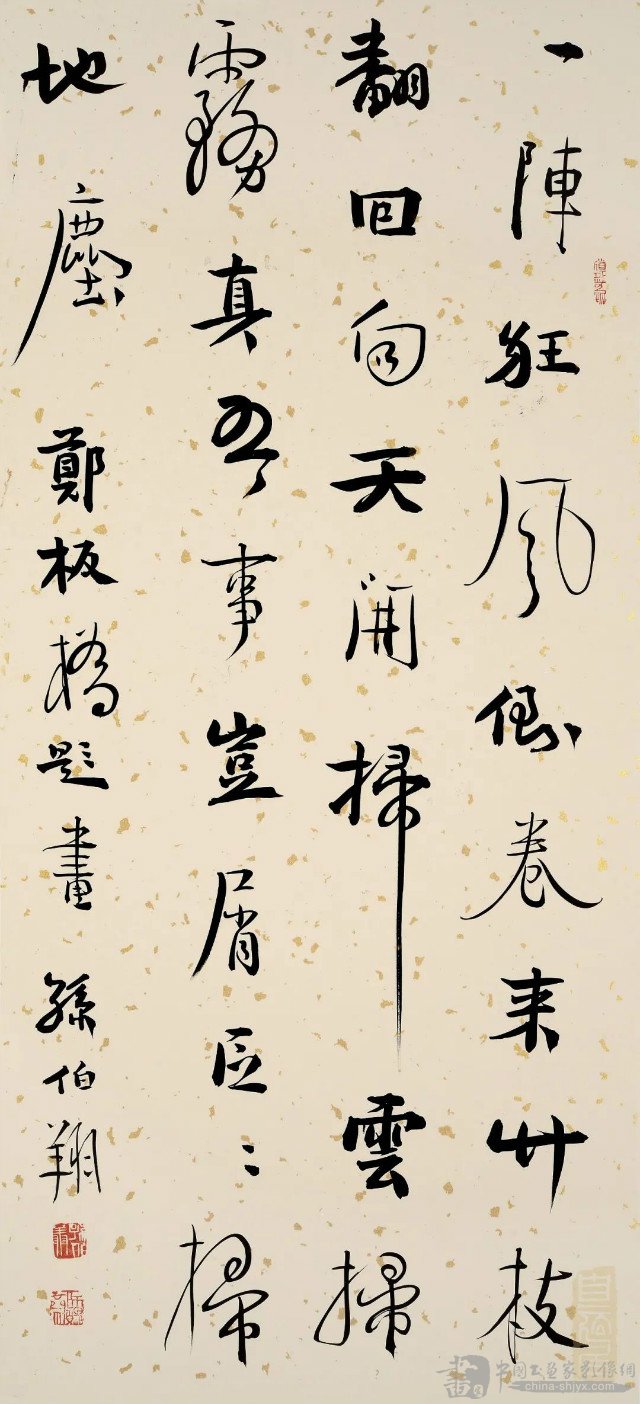 一陣狂風倒卷来竹枝
翻回向天開掃雲掃
霧真吾事豈屑区〻掃
地塵 鄭板橋題畫 孫伯翔
中國书画家影像網
china-shjyx.com